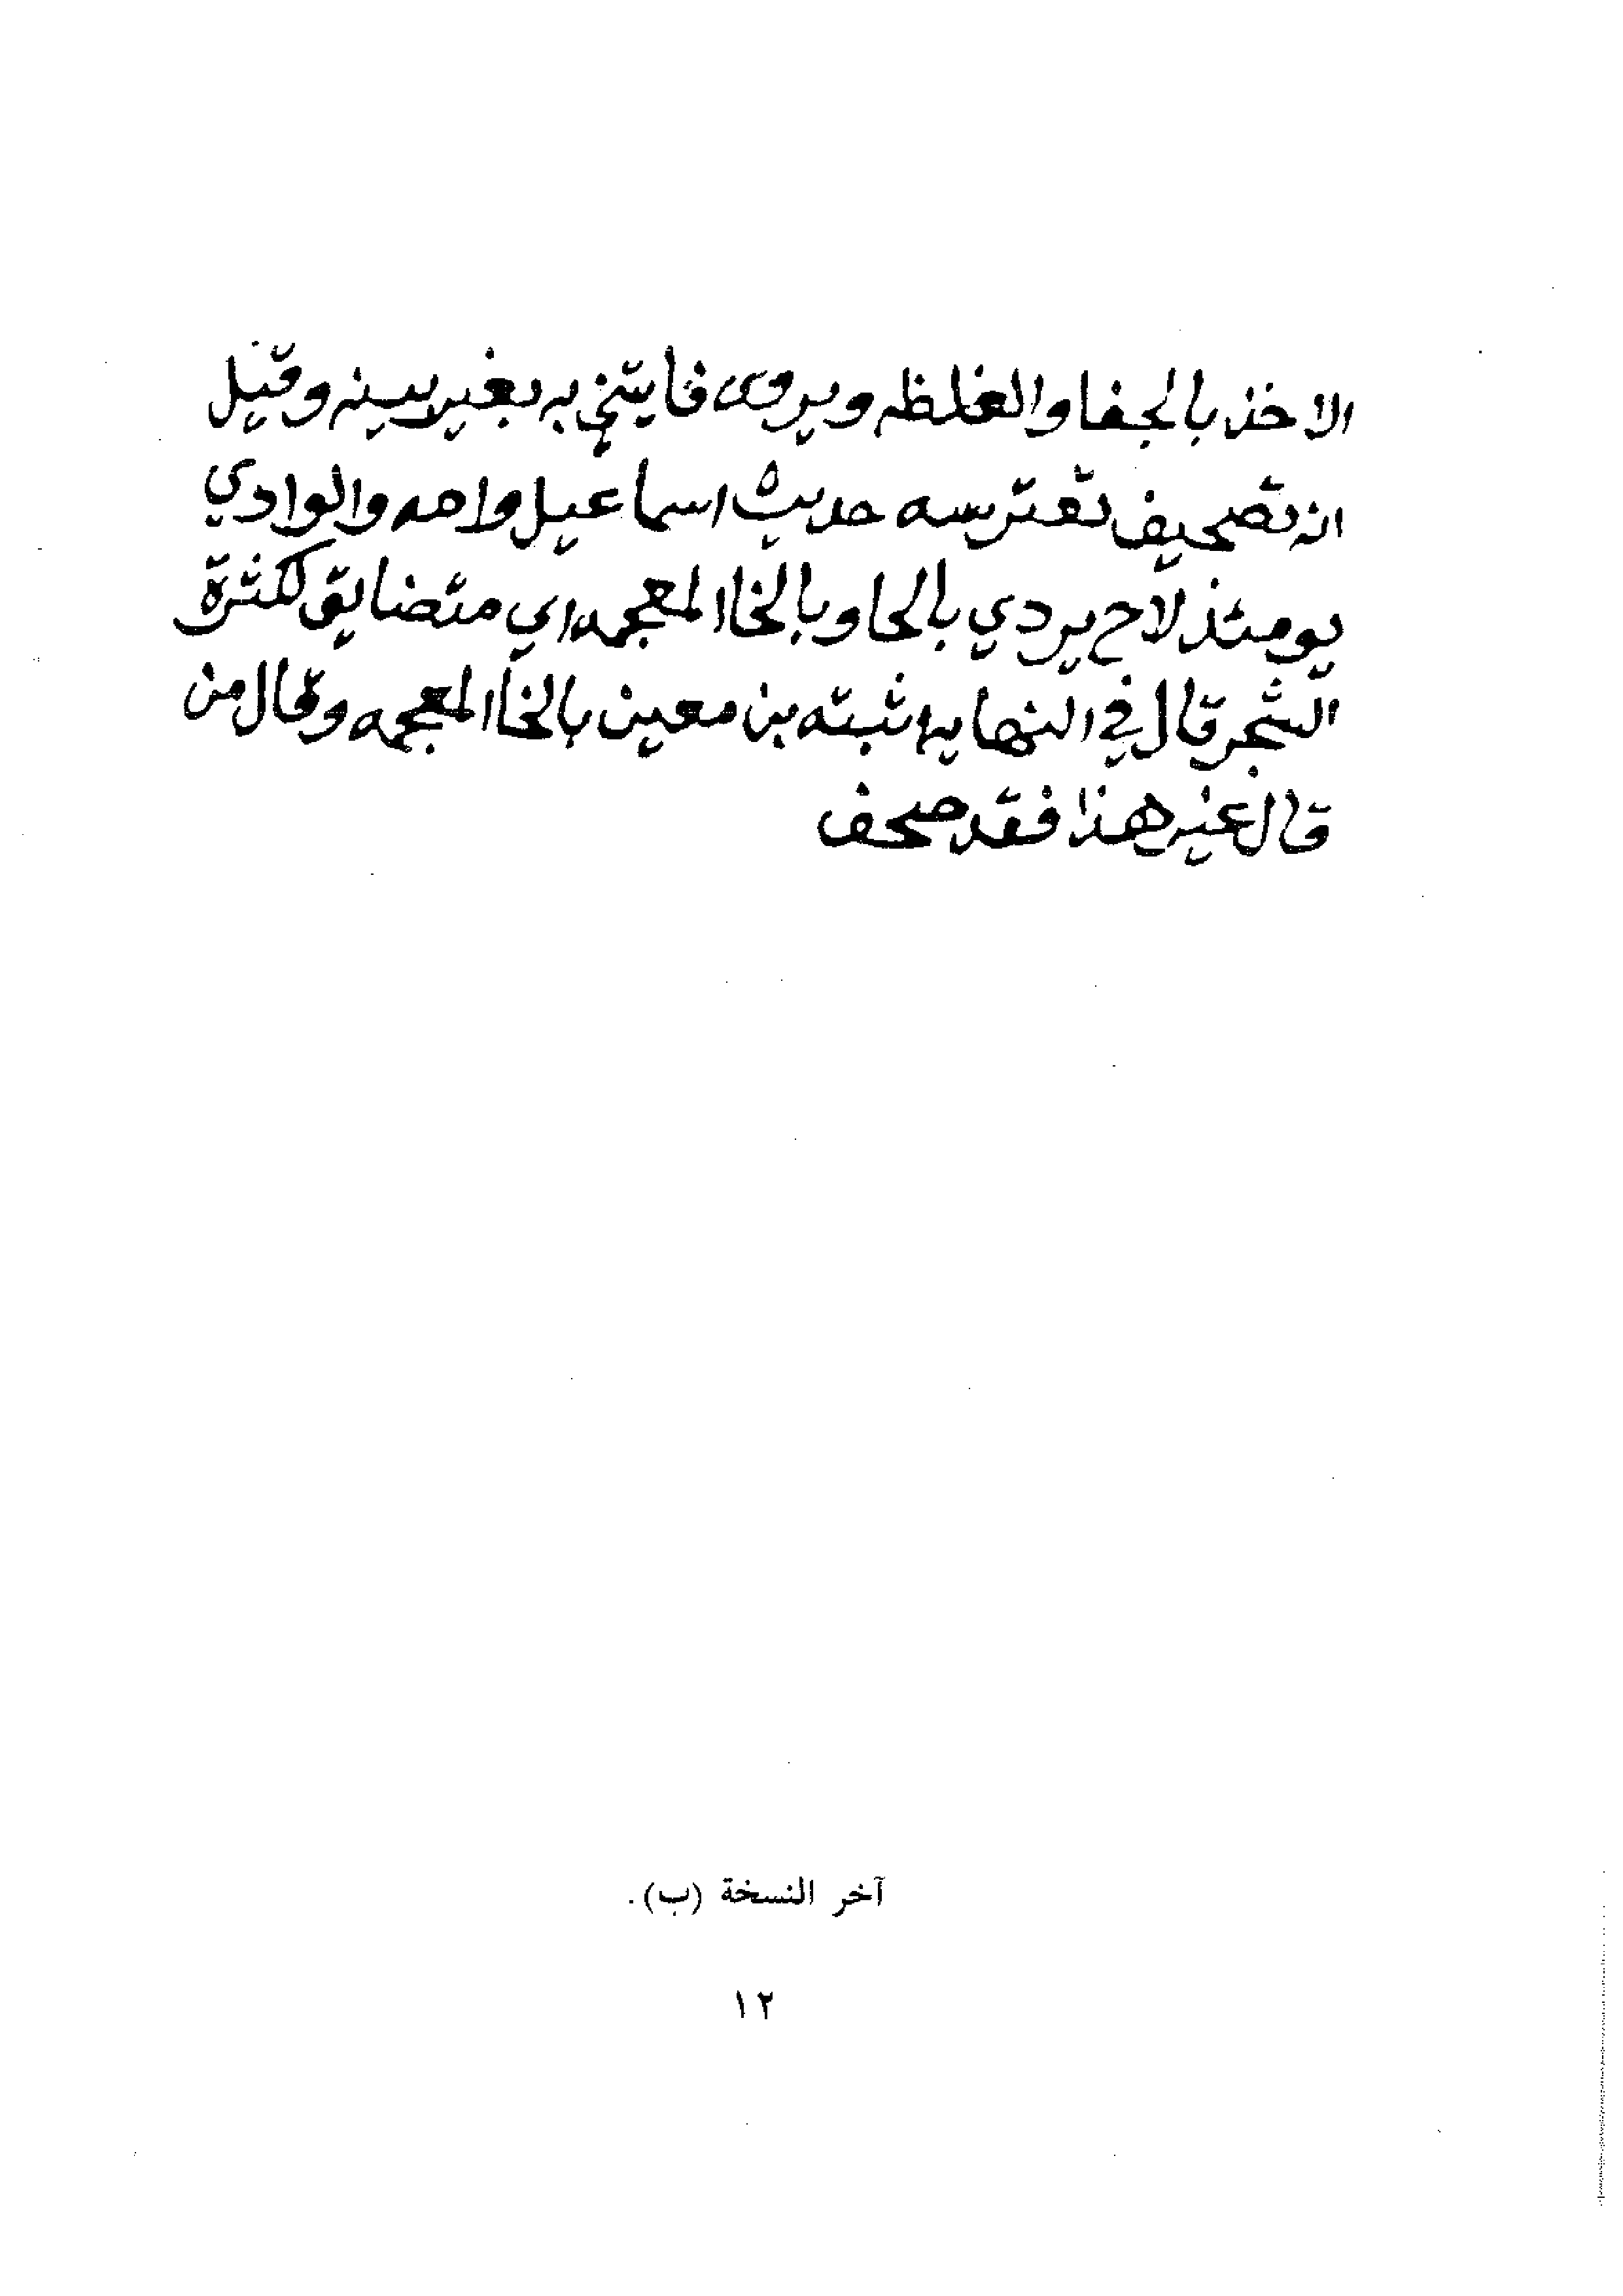 الاخذ بالجفا والغلظه ويروى فايتني به بغير بينه وقيل
انه تصحيف تعترسه حديث اسماعيل وامه والوادي
يومئذ لاح يردي بالحا وبالخا المعجمه اي متضايق لكثرة
الشجر قال في النهايه اثبته بن معين بالخا المعجمه وقال من
قال غير هذا فقد صحف
آخر النسخة (ب).
١٢